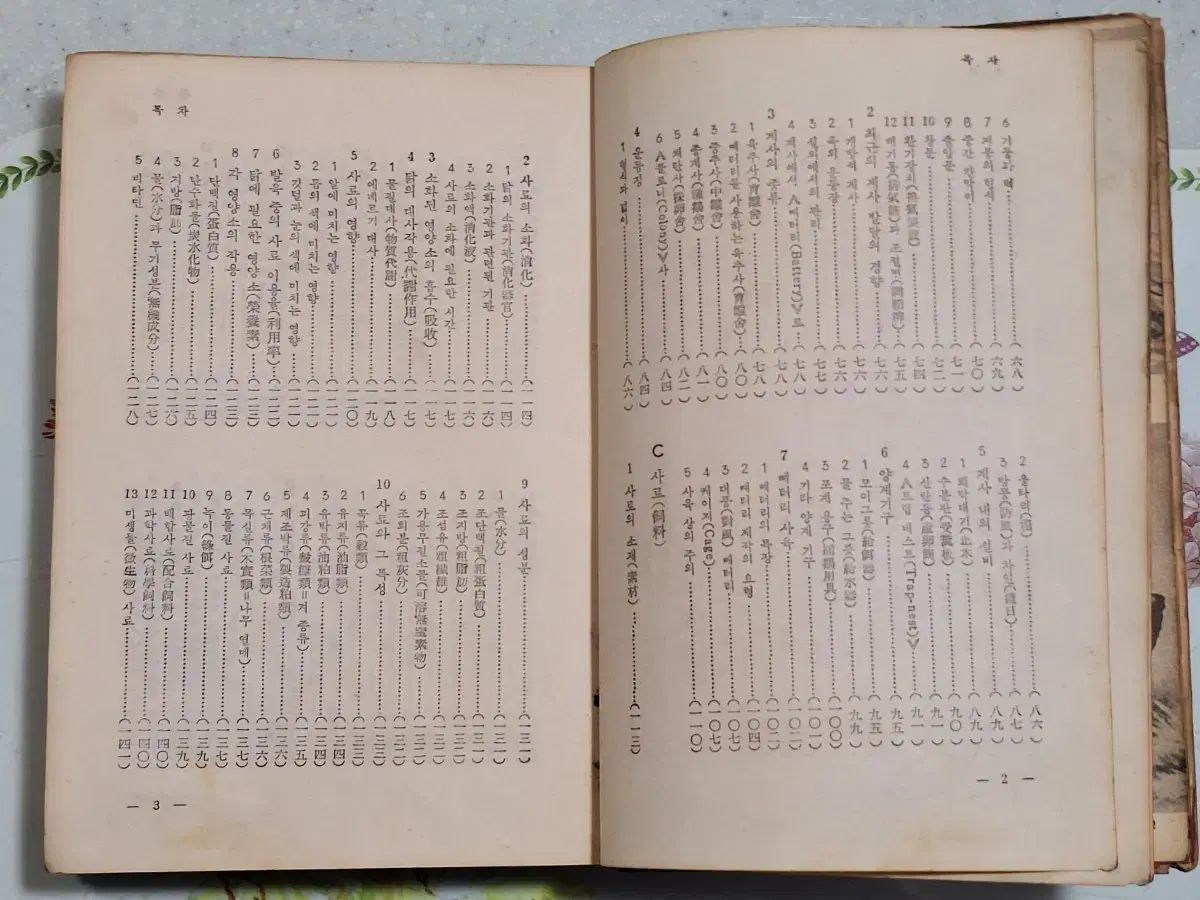 목 차
6 기둥과 벽……(六八)
7 지붕의 형식……(六九)
8 중간 칸막이……(七〇)
9 출입문……(七一)
10 창문……(七二)
11 환기장치(換氣裝置)……(七四)
12 배기통(排氣筒)과 조절판(調節瓣)……(七五)
2 최근의 계사 발달의 경향……(七六)
1 개방제 계사……(七六)
2 옥외 운동장……(七七)
3 실외에서의 관리……(七七)
4 계사에서 ∧빠터리(Battery)∨로……(七八)
3 계사의 종류……(七八)
1 육추사(育雛舍)……(七八)
2 빠터리를 사용하는 육추사(育雛舍)……(八〇)
3 중추사(中雛舍)……(八〇)
4 종계사(種鷄舍)……(八一)
5 채란사(採卵舍)……(八二)
6 ∧콜로니(Colony)∨사……(八四)
4 운동장……(八四)
1 형식과 넓이……(八六)
2 울타리……(八六)
3 방풍(防風)과 차일(遮日)……(八七)
5 계사 내의 설비……(八九)
1 홰막대기(止木)……(八九)
2 수분판(受糞板)……(九〇)
3 산란통(産卵筒)……(九一)
4 ∧트랩 네스트(Trapnest)∨……(九一)
6 양계기구……(九五)
1 모이그릇(給餌器)……(九五)
2 물 주는 그릇(給水器)……(九九)
3 포계 용구(捕鷄用具)……(一〇〇)
4 기타 양계 기구……(一〇一)
7 빠터리 사육……(一〇二)
1 빠터리의 특장……(一〇二)
2 빠터리 제작의 요령……(一〇四)
3 대풍(對風) 빠터리……(一〇六)
4 케이지(Cage)……(一〇七)
5 사육 상의 주의……(一一〇)
C 사료(飼料)
1 사료의 소재(素材)……(一一三)
— 2 —
목 차
2 사료의 소화(消化)……(一一四)
1 닭의 소화기관(消化器官)……(一一四)
2 소화기관과 관련된 기관……(一一六)
3 소화액(消化液)……(一一六)
4 사료의 소화에 필요한 시간……(一一七)
3 소화된 영양소의 흡수(吸收)……(一一七)
4 닭의 대사작용(代謝作用)……(一一七)
1 물질대사(物質代謝)……(一一八)
2 에네르기 대사……(一一九)
5 사료의 영향……(一二〇)
1 알에 미치는 영향……(一二一)
2 몸의 색에 미치는 영향……(一二一)
3 깃털과 눈의 색에 미치는 영향……(一二一)
6 발육 중의 사료 이용율(利用率)……(一二二)
7 닭에 필요한 영양소(榮養素)……(一二三)
8 각 영양소의 작용……(一二三)
1 단백질(蛋白質)……(一二四)
2 탄수화물(炭水化物)……(一二五)
3 지방(脂肪)……(一二六)
4 물(水分)과 무기성분(無機成分)……(一二七)
5 비타민……(一二八)
9 사료의 성분……(一三一)
1 물(水分)……(一三一)
2 조단백질(粗蛋白質)……(一三一)
3 조지방(粗脂肪)……(一三二)
4 조섬유(粗纖維)……(一三二)
5 가용무질소물(可溶無窒素物)……(一三二)
6 조회분(粗灰分)……(一三二)
10 사료와 그 특성……(一三三)
1 곡류(穀類)……(一三三)
2 유지류(油脂類)……(一三四)
3 유박류(油粕類)……(一三四)
4 피강류(皮糠類=겨 종류)……(一三五)
5 제조박류(製造粕類)……(一三六)
6 근채류(根菜類)……(一三六)
7 목실류(木實類=나무 열매)……(一三七)
8 동물질 사료……(一三七)
9 녹이(綠餌)……(一三九)
10 광물질 사료……(一三九)
11 배합사료(配合飼料)……(一四〇)
12 과학사료(科學飼料)……(一四〇)
13 미생물(微生物) 사료……(一四一)
— 3 —